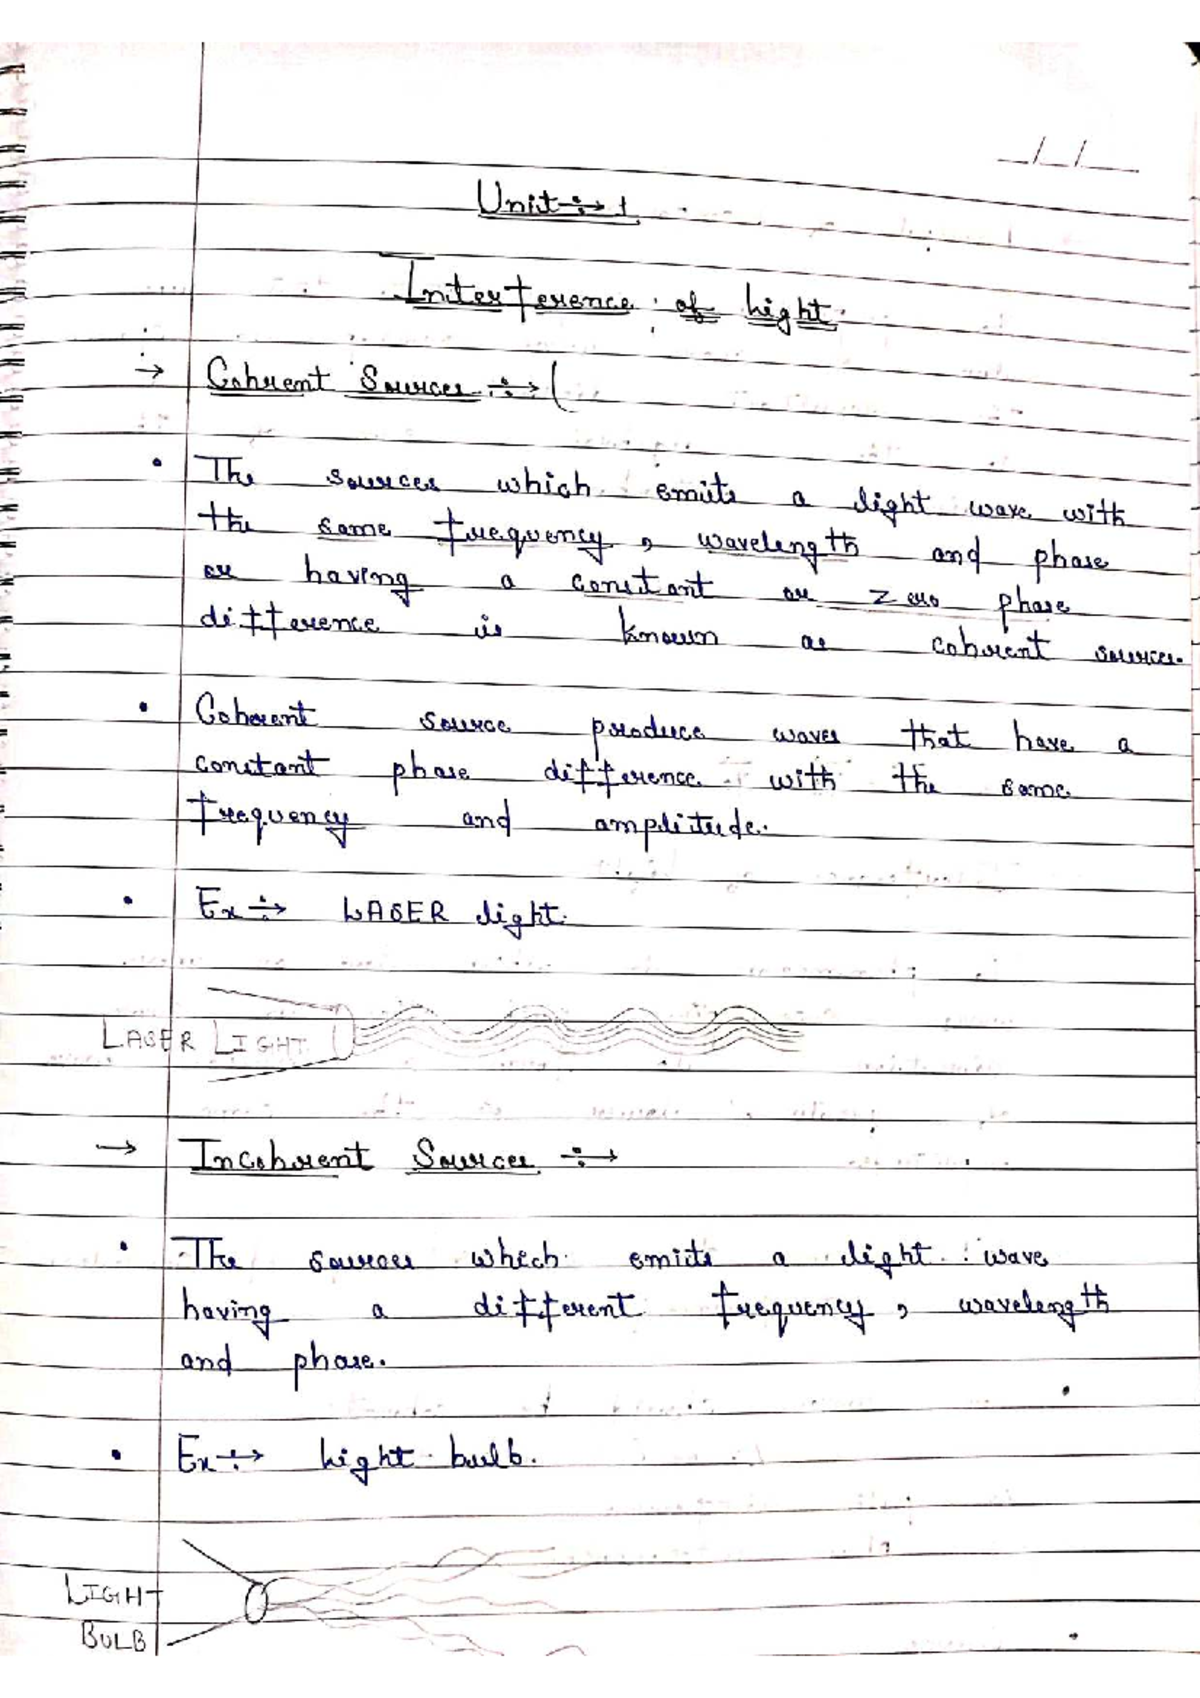 Unit ÷→ 1
Interference of Light
→ Cohrent Sources ÷→ (
• The sources which emits a light wave with
the same frequency, wavelength and phase
or having a constant or zero phase
difference is known as cohrent source.
• Coherent source produce waves that have a
constant phase difference with the same
frequency and amplitude.
• Ex ÷→ LASER light.
LASER LIGHT
→ Incohrent Sources ÷→
• The sources which emits a light wave
having a different frequency, wavelength
and phase.
• Ex ÷→ Light bulb.
LIGHT
BULB